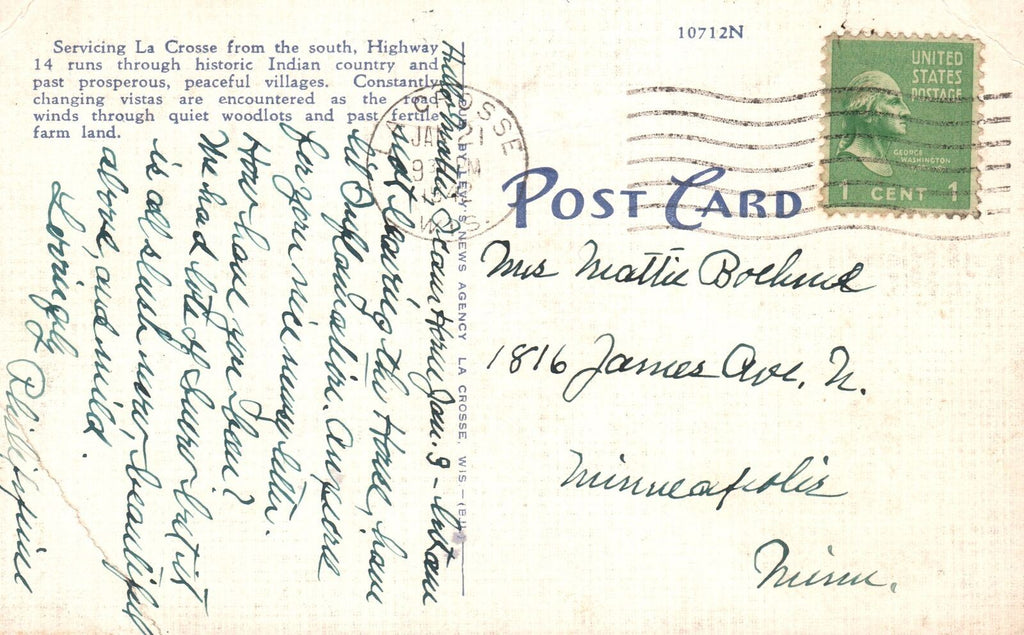 Servicing La Crosse from the south, Highway
14 runs through historic Indian country and
past prosperous, peaceful villages. Constantly
changing vistas are encountered as the road
winds through quiet woodlots and past fertile
farm land.
10712N
UNITED
STATES
POSTAGE
GEORGE
WASHINGTON
1 CENT 1
LA CROSSE
JAN 21
WIS.
POST CARD
NEWS AGENCY LA CROSSE, WIS.
Mrs Mattie Boehme
1816 James Ave. N.
Minneapolis
Minn.
Hello Mattie, Came Home Jan. 9 - but am
not leaving the House, have
Inflamation. Am so
for your nice newsy letter.
How have you been?
We had lots of snow but it
is all slush now, beautiful
above, and mild.
Lovingly
Philippine